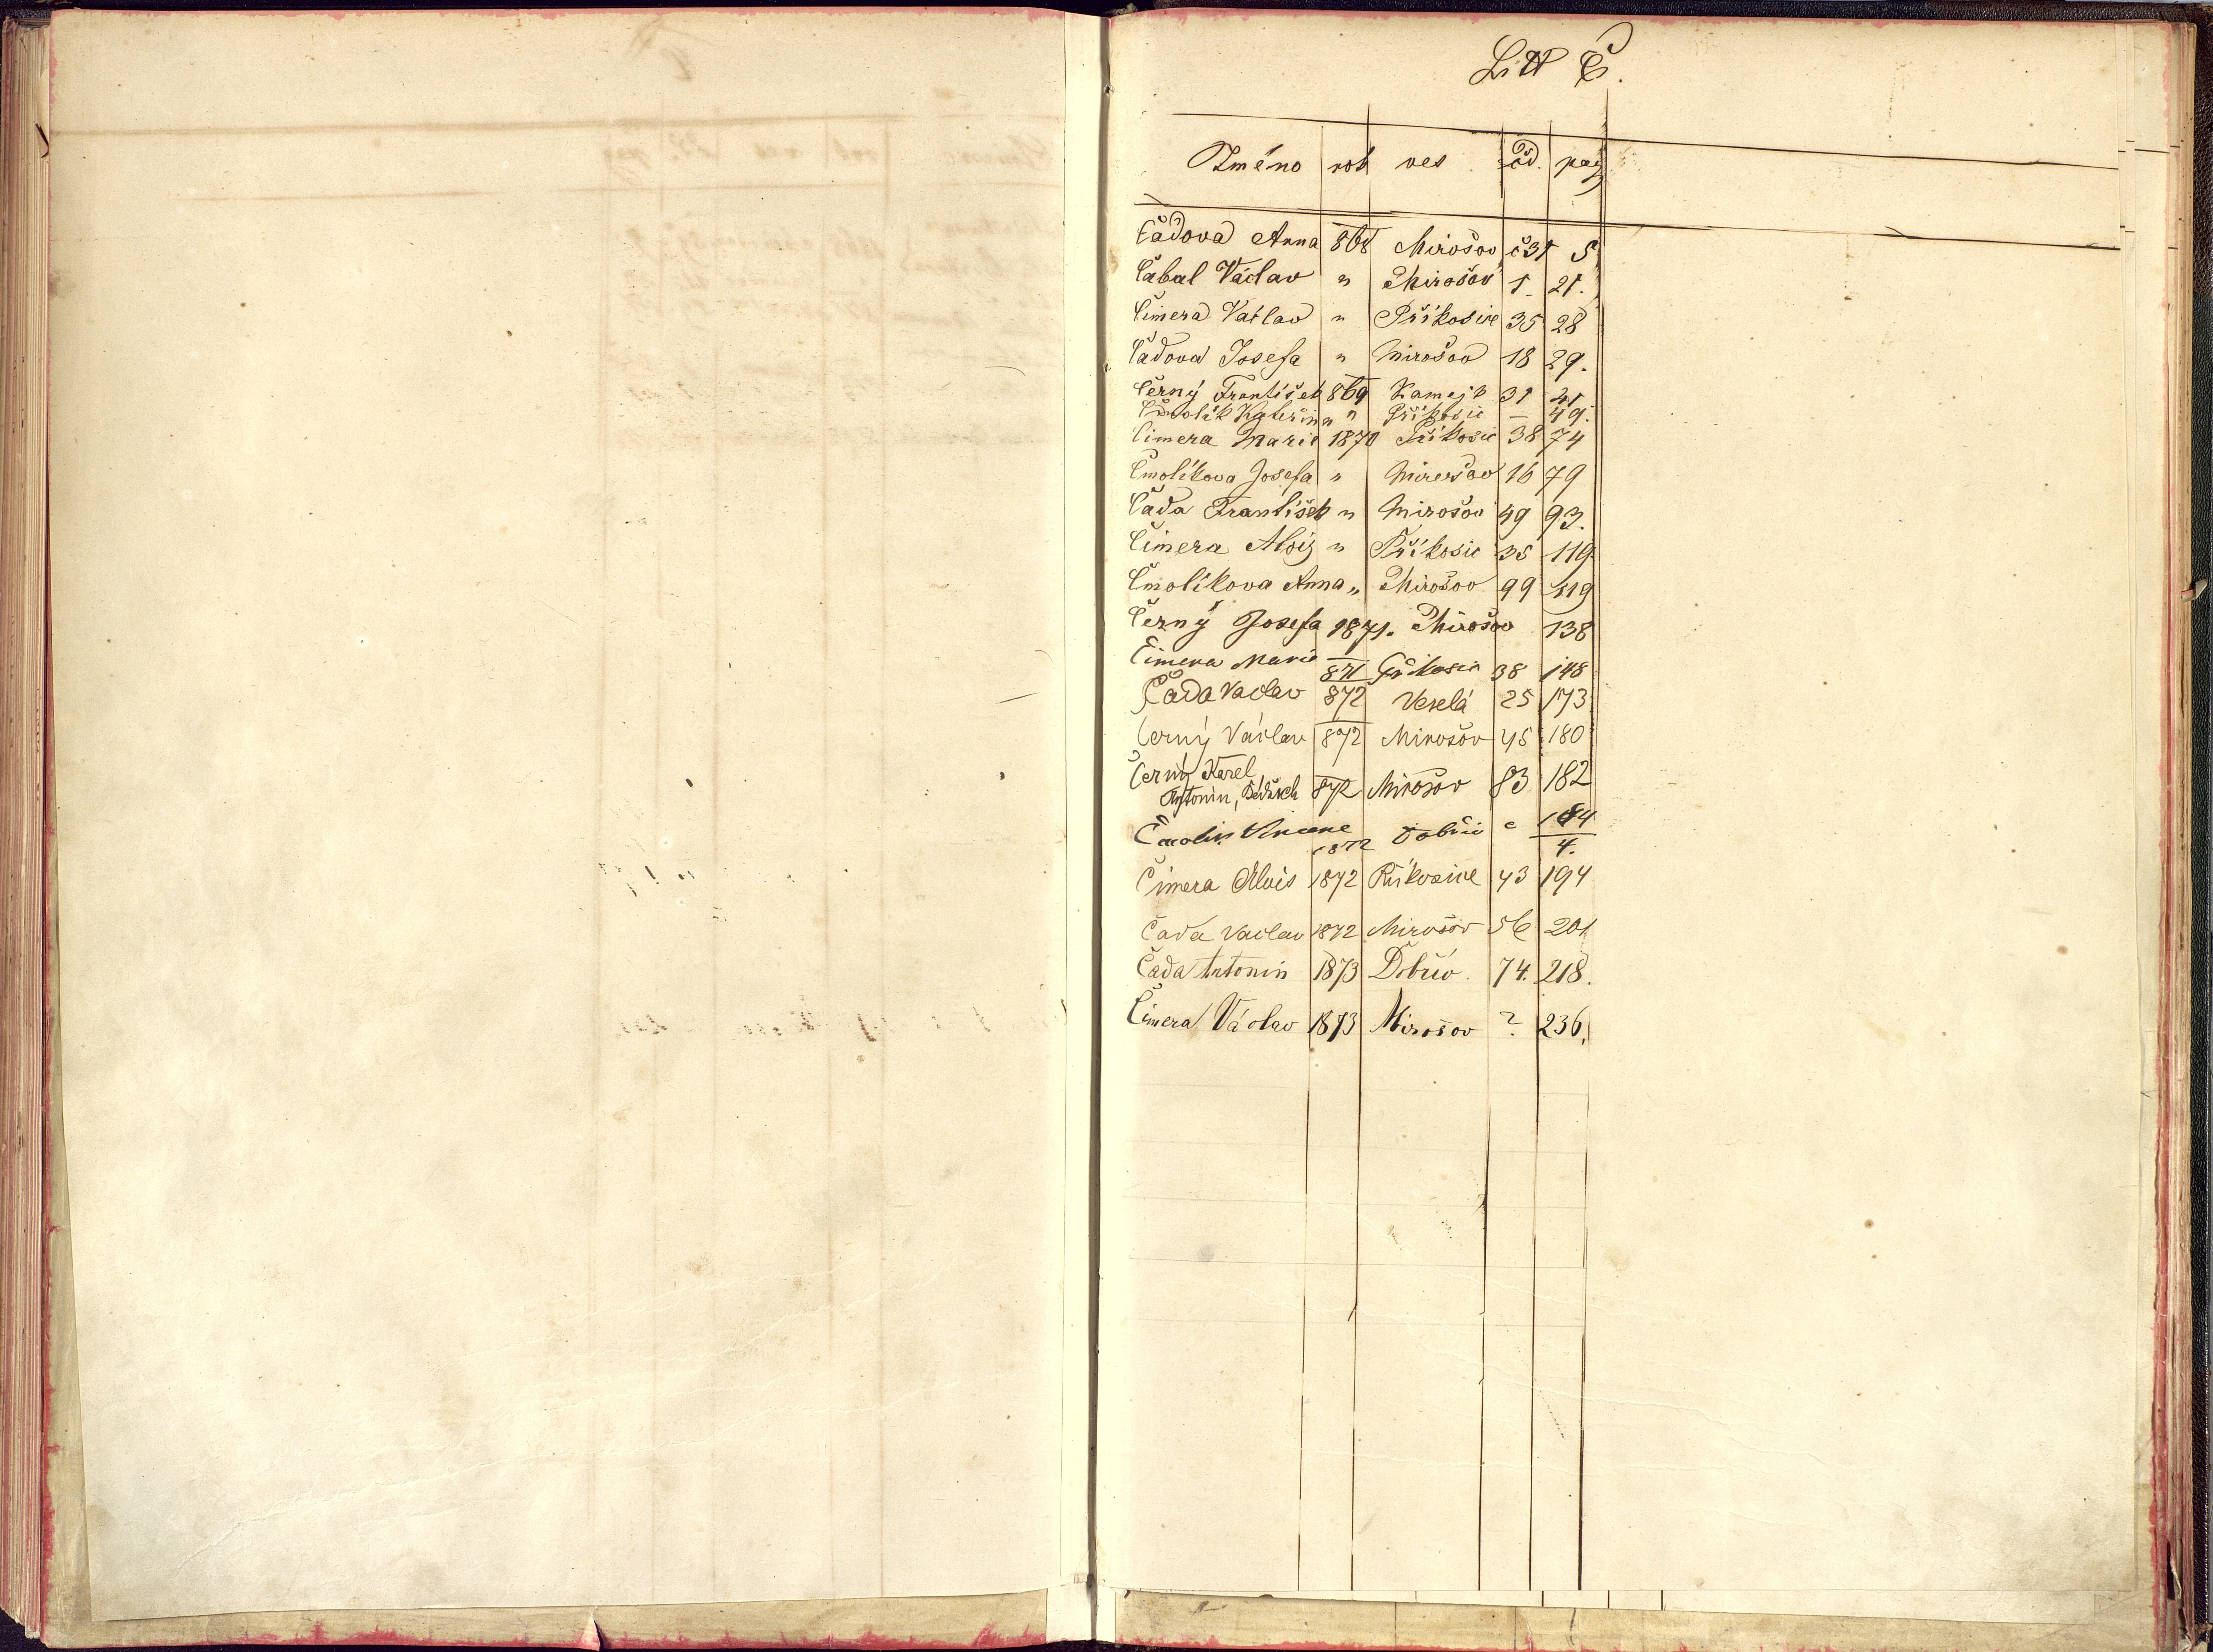 Litt Č.
Jméno rok ves čd. pag
Čádova Anna 868 Mirošov č31 5
Čabal Václav " Mirošov 1. 21.
Čimera Václav " Příkosice 35 28
Čádova Josefa " Mirošov 18 29.
Černý František 869 Kamejk 31 41
Čmolik Kateřina " Příkosic — 49.
Čimera Marie 1870 Příkosic 38 74
Čmolíkova Josefa " Mirošov 16 79
Čada František " Mirošov 49 93.
Čimera Alois " Příkosic 35 119
Čmolíkova Anna " Mirošov 99 119
Černý Josefa 1871. Mirošov 138
Čimera Marie 871 Příkosic 38 148
Čada Václav 872 Veselá 25 173
Černý Václav 872 Mirošov 45 180
Černý Karel
Antonin, 872 Mirošov 83 182
Čmolik 1872 Dobřív 184
4.
Čimera Alois 1872 Příkosice 43 194
Čada Vaclav 1872 Mirošov 56 201
Čada Antonin 1873 Dobřív. 74. 218.
Čimera Václav 1873 Mirošov ? 236,